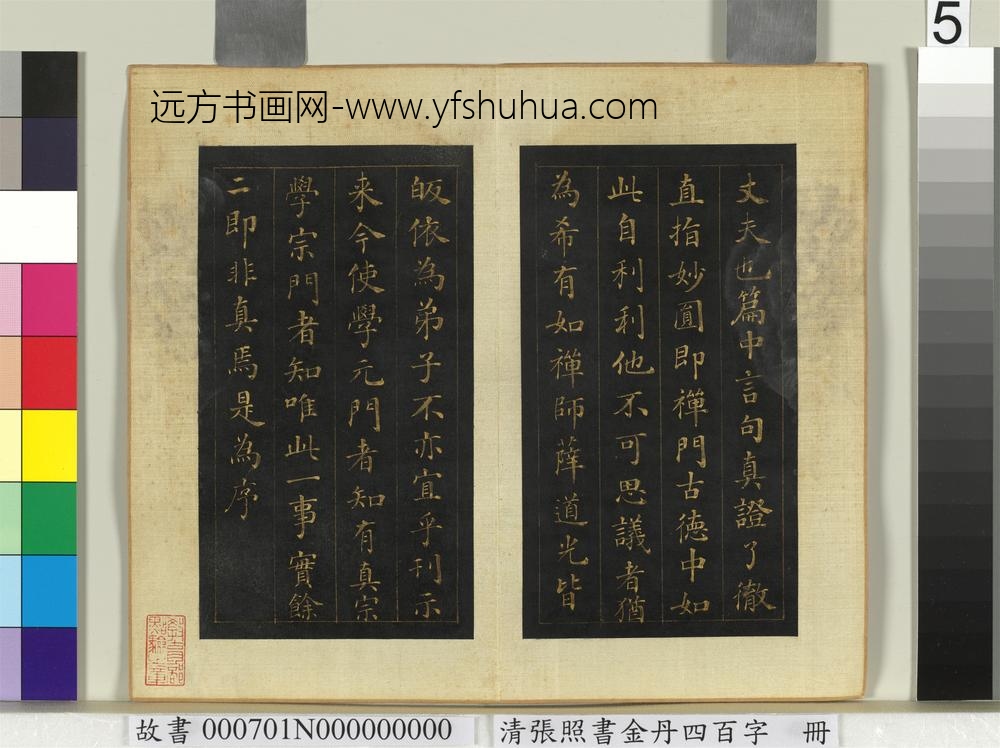 5
远方书画网-www.yfshuhua.com
丈夫也篇中言句真證了徹
直指妙圓即禪門古徳中如
此自利利他不可思議者猶
為希有如禪師薛道光皆
皈依為弟子不亦宜乎刊示
来今使學元門者知有真宗
學宗門者知唯此一事實餘
二即非真焉是為序
故書 000701N000000000
清張照書金丹四百字 冊